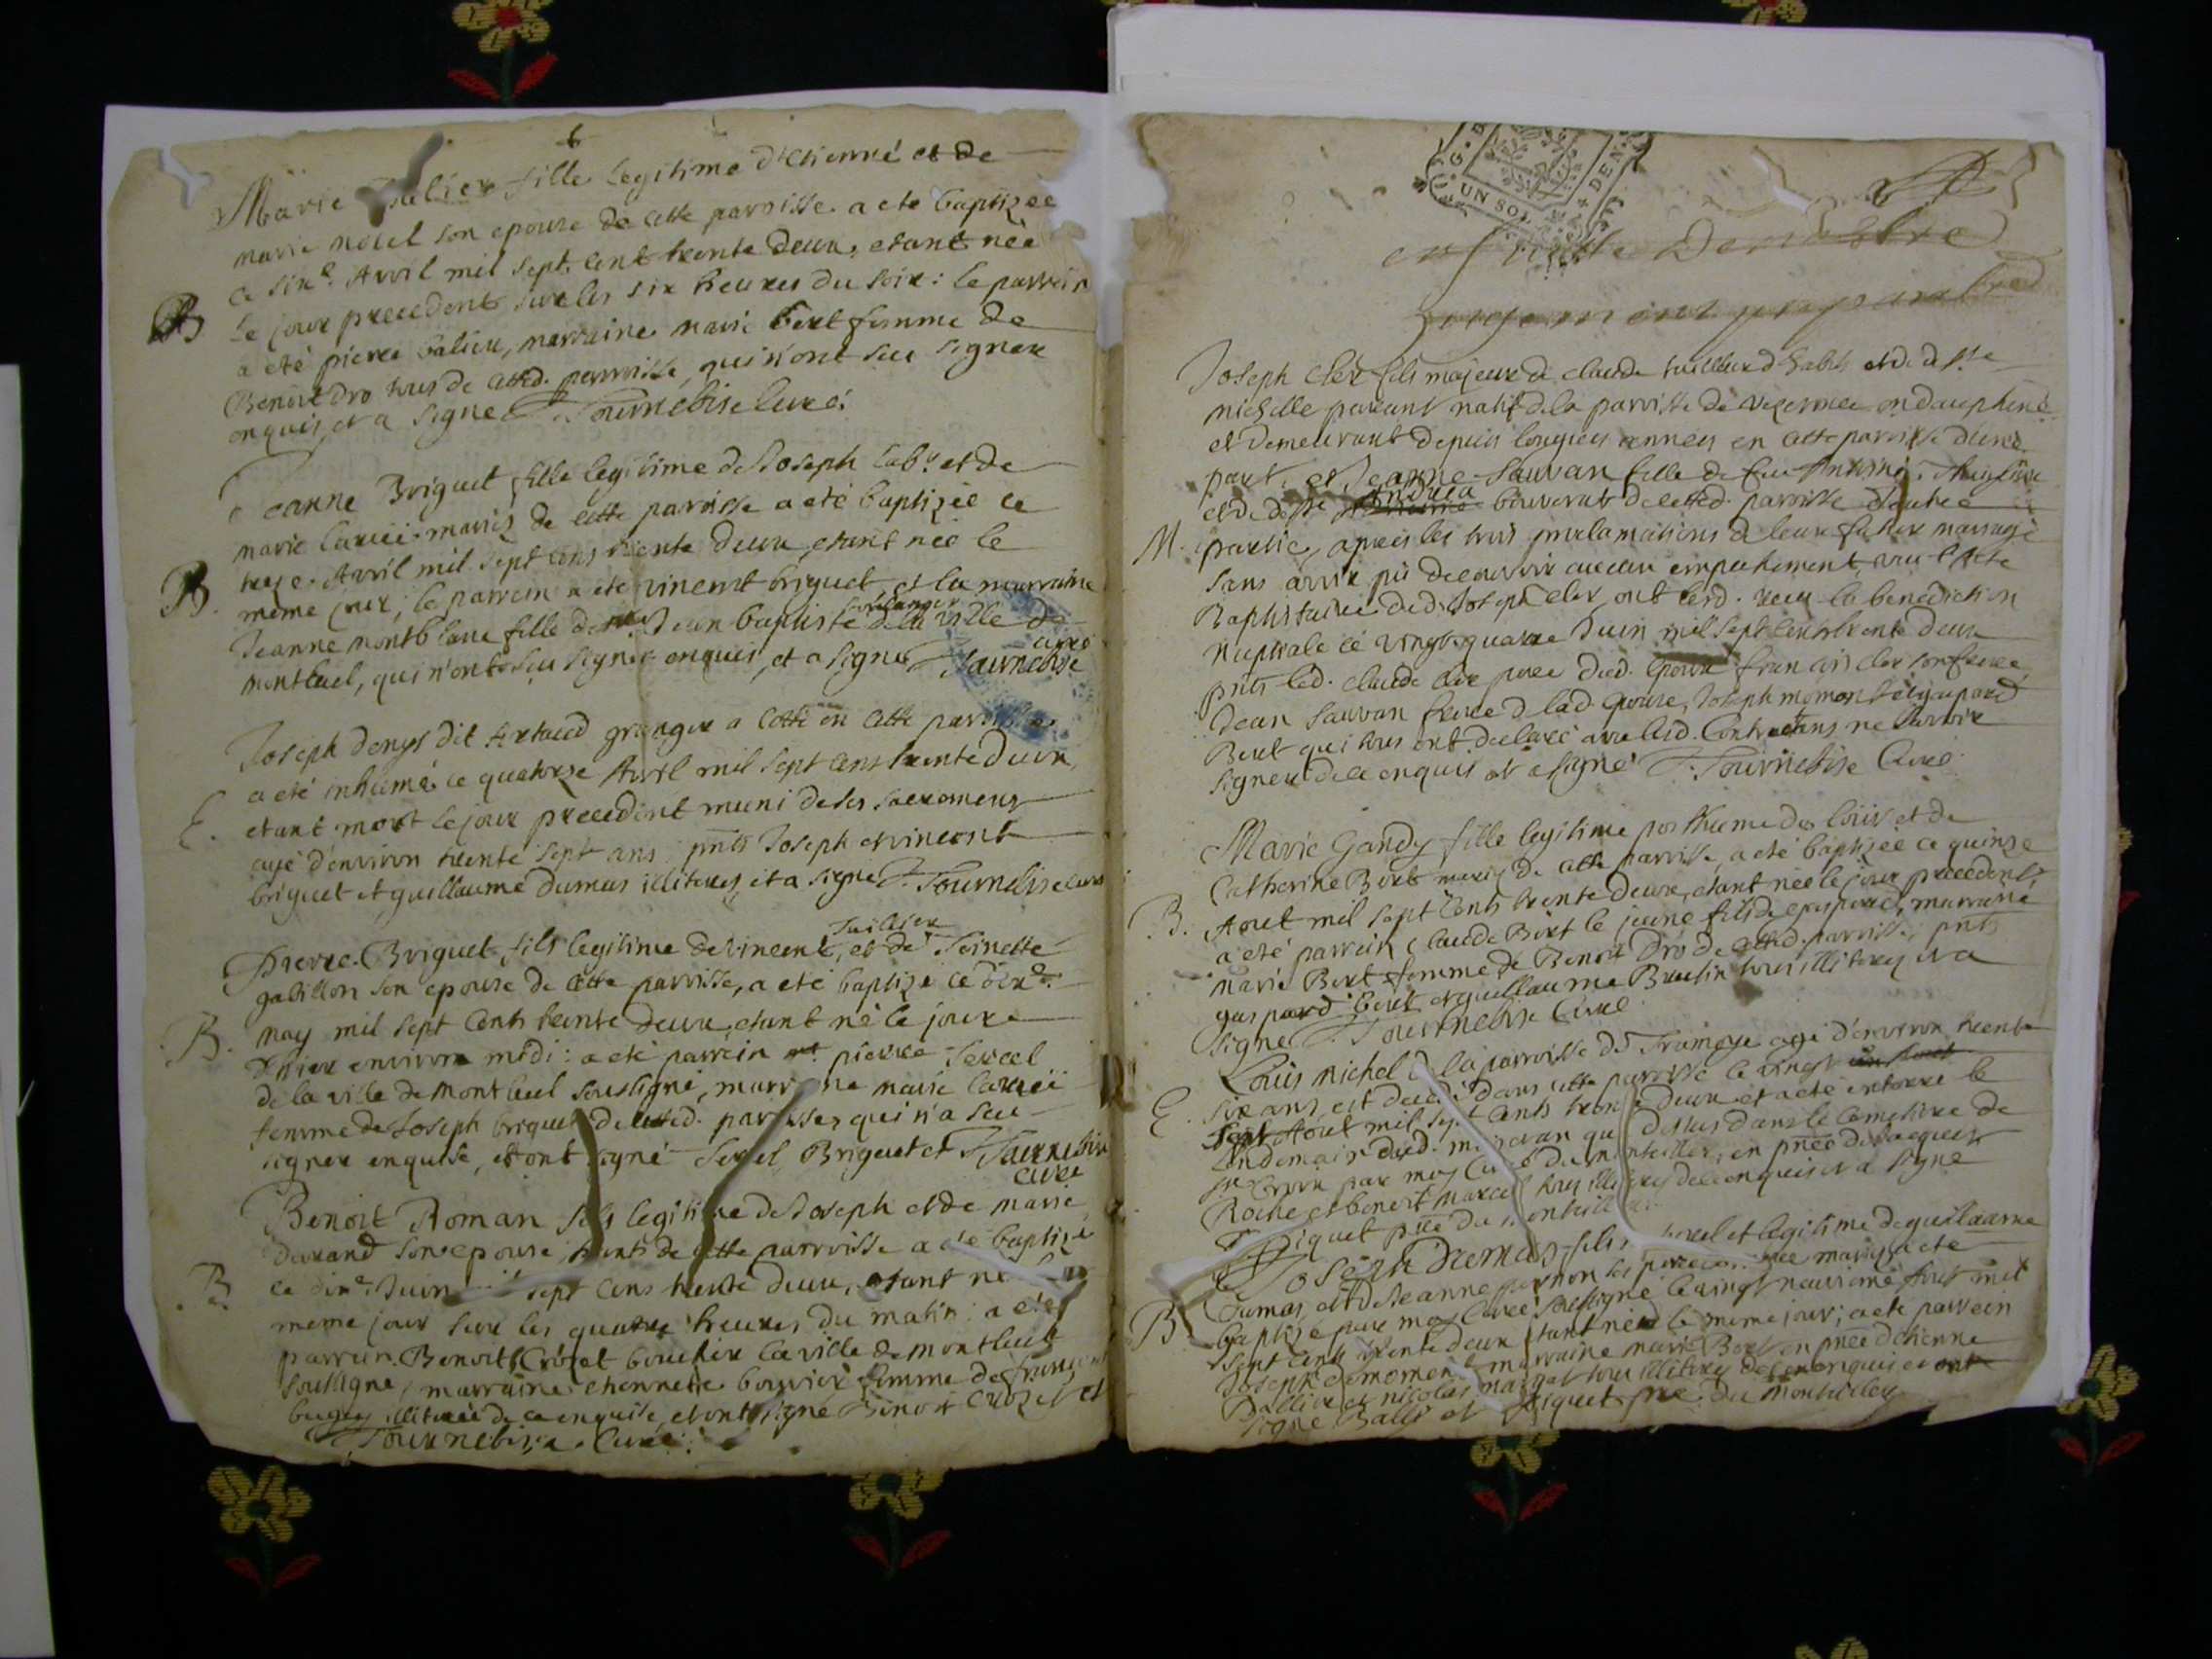 Marie fille legitime d'Etienné et de
marie notel son epouse de cette parroisse a eté baptizée
ce sixe. Avril mil sept cent trente deux, etant née
B le jour precedent sur les six heures du soir: le parrein
a eté pierre balieu, marraine marie bert femme de
Benoit dro tous de cetted. parroisse, qui n'ont seu signer
enquis, et a signé J. Tournebise curé.
Jeanne Briguet fille legitime de Joseph labr. et de
marie mariés de cette paroisse a eté baptizée ce
treze Avril mil sept cens trente deux, etant née le
B. meme jour; le parrein a eté vincent briguet et la marraine
boulanger
Jeanne montblanc fille de Jean baptiste de la ville de
montluel, qui n'ont seu signer enquis, et a signé J. Tournebise
curé
Joseph denys dit Artaud granger a cotte en cette parroisse
a eté inhumé ce quatorze Avril mil sept cens trente deux,
E. etant mort le jour precedent muni de ses sacremens
agé d'environ trente sept ans: pnts Joseph et vincent
briguet et guillaume dumas illiterez, et a signé J. Tournebise curé
tuilier
Pierre Briguet fils legitime de vincent, et de Toinette
gabillon son epouse de cette parroisse, a eté baptizé ce
B. may mil sept cents trente deux, etant né le jour
d'hier environ midi: a eté parrein pierre Sercel
de la ville de Montluel soussigné, marraine marie
femme de Joseph briguet de cetted. paroisse, qui n'a seu
signer enquise, et ont signé Sercel, Briguet et J. Tournebise
curé
Benoit Roman fils legitime de Joseph et de marie
durand son epouse, de cette parroisse a eté baptizé
B. ce dixe. Juin mil sept cens trente deux, etant né le
meme jour sur les quatre heures du matin: a eté
parrein Benoit Crozet boucher la ville de montluel
soussigné, marraine ethennette bouvier femme de
illiterée de ce enquise, et ont signé Benoit Crozet et
J. Tournebise Curé.
G. B. UN SOL DEN
Joseph cler fils majeur de claude tailleur d'habits et de d. pte
michelle natif de la parroisse de en dauphiné
et demeurant depuis longues années en cette parroisse d'une
part, et Jeanne Sauvan fille de feu Antoine,
Andrea
et de bouverat de cetted. parroisse d'autre
M. partie, apres les trois proclamations de leur futur mariage
sans avoir pü decouvrir aucun empechement, veu l'acte
Baptistaire dud. Joseph cler, ont lesd. receu la benediction
nuptiale ce vingt quatre Juin mil sept cens trente deux
pnts led. claude cler pere dud. epoux françois cler son frere,
Jean Sauvan frere de lad. epouse, Joseph moment et gaspard
Bert qui tous ont declaré avec lesd. Contractans ne savoir
signer de ce enquis et a signé J. Tournebise Curé
Marie Gandy fille legitime posthume de loüis et de
Catherine Bert mariés de cette parroisse, a eté baptizée ce quinze
B. Aout mil sept cents trente deux, etant née le jour precedent,
a eté parrein claude Bert le jeune fils de gaspard, marraine
marie Bert femme de Benoit Dro de cetted. parroisse, pnts
gaspard bert et guillaume Breslin tous illiterez et a
signé J. Tournebise Curé
Loüis michel de la parroisse de Tramoye agé d'environ trente
E. six ans, est decedé dans cette parroisse le vingt
sept Aout mil sept cents trente deux et a eté enterré le
lendemain dud. mois et an que dessus dans le cemetiere de
Ste Croix par moy Curé du montellier, en pnce de
Roche et benoit marcel tous illiterez de ce enquis et a signé
Piquet ptre du montellier
Joseph Dumas fils naturel et legitime de guillaume
dumas, et de Jeanne mariés, a eté
B. baptizé par moy Curé soussigné le vingt neuvieme Aout mil
sept cents trente deux etant né le meme jour; a eté parrein
Joseph demoment, marraine marie Bert en pnce d'etienne
Ballie et nicolas tous illiterez de ce enquis et ont
signé Balli et Piquet ptre du Montellier